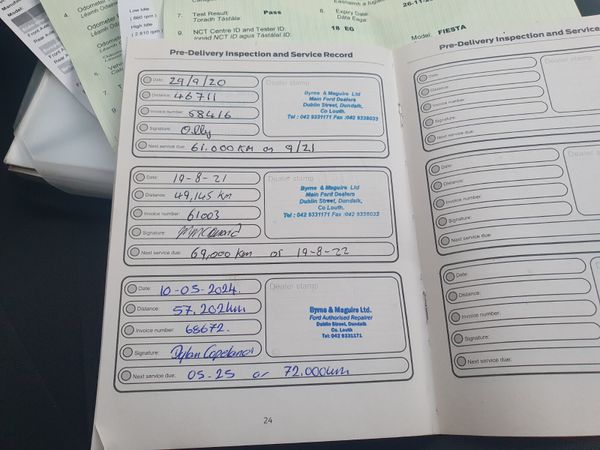 Low Idle
( 660 rpm )
High Idle
( 2,610 rpm )
7. Test Result: Pass
Toradh Tástála:
9. NCT Centre ID and Tester ID: 18 EG
8. Expiry Date
Dáta Éaga
26-11-
Model: FIESTA
Pre-Delivery Inspection and Service Record
Date: 29/9/20
Distance: 46711
Invoice number: 58416
Signature: Olly
Next service due: 61.000 KM or 9/21
Dealer stamp
Byrne & Maguire Ltd
Main Ford Dealers
Dublin Street, Dundalk,
Co Louth.
Tel : 042 9331171 Fax :042 9338033
Date: 19-8-21
Distance: 49,145 km
Invoice number: 61003
Signature:
Next service due: 69,000 km or 19-8-22
Dealer stamp
Byrne & Maguire Ltd
Main Ford Dealers
Dublin Street, Dundalk,
Co Louth.
Tel : 042 9331171 Fax :042 9338033
Date: 10-05-2024.
Distance: 57.202km
Invoice number: 68672.
Signature: Dylan Copeland
Next service due: 05-25 or 72.000km
Dealer stamp
Byrne & Maguire Ltd.
Ford Authorised Repairer
Dublin Street, Dundalk
Co. Louth
Tel: 042 9331171
24
Pre-Delivery Inspection and Service
Date:
Distance:
Invoice number:
Signature:
Next service due:
Date:
Distance:
Invoice number:
Signature:
Next service due:
Dealer
Date:
Distance:
Invoice number:
Signature:
Next service due:
Dealer